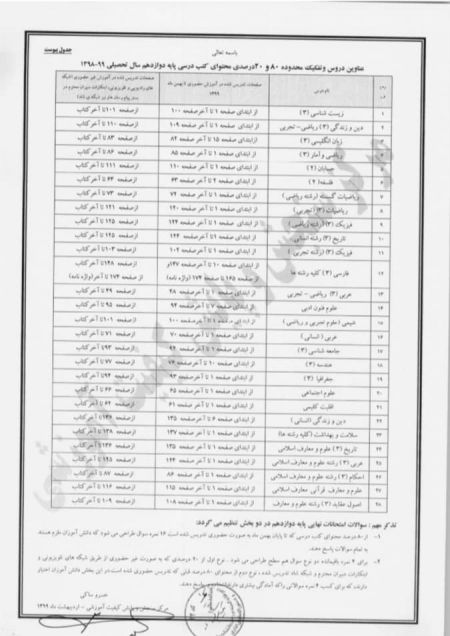 باسمه تعالی
جدول پیوست
عناوین دروس وتفکیک محدوده ۸۰ و ۲۰درصدی محتوای کتب درسی پایه دوازدهم سال تحصیلی ۹۹-۱۳۹۸
نام درس
صفحات تدریس شده در آموزش حضوری تا بهمن ماه ۱۳۹۹
صفحات تدریس شده در آموزش غیر حضوری (شبکه
۱ زیست شناسی (۳) از ابتدای صفحه ۱ تا آخر صفحه ۱۰۰ ازصفحه ۱۰۱ تا آخر کتاب
۲ دین و زندگی (۳) ریاضی-تجربی از ابتدای صفحه ۱ تا آخر صفحه ۱۰۹ ازصفحه ۱۱۰ تا آخر کتاب
۳ زبان انگلیسی (۳) ازابتدای صفحه ۱۵ تا آخر صفحه ۸۲ ازصفحه ۸۳ تا آخر کتاب
۴ ریاضی و آمار (۳) از ابتدای صفحه ۱ تا آخر صفحه ۸۵ ازصفحه ۸۶ تا آخر کتاب
۵ حسابان (۲) از ابتدای صفحه ۱ تا آخر صفحه ۱۱۰ ازصفحه ۱۱۱ تا آخر کتاب
۶ فلسفه (۲) از ابتدای صفحه ۲ تا آخر صفحه ۶۳ ازصفحه ۶۴ تا آخر کتاب
۷ ریاضیات گسسته (رشته ریاضی) از ابتدای صفحه ۱ تا آخر صفحه ۷۲ ازصفحه ۷۳ تا آخر کتاب
۸ ریاضیات (۳) (تجربی) از ابتدای صفحه ۱ تا آخر صفحه ۱۲۰ ازصفحه ۱۲۱ تا آخر کتاب
۹ فیزیک (۳) (رشته ریاضی) از ابتدای صفحه ۱ تا آخر صفحه ۱۲۴ ازصفحه ۱۲۵ تا آخر کتاب
۱۰ تاریخ (۳) رشته انسانی از ابتدای صفحه ۱ تا آخر صفحه ۱۲۴ ازصفحه ۱۲۵ تا آخر کتاب
۱۱ فیزیک (۳) (رشته تجربی) از ابتدای صفحه ۱ تا آخر صفحه ۱۰۲ ازصفحه ۱۰۳ تا آخر کتاب
۱۲ فارسی (۳) کلیه رشته ها از ابتدای صفحه ۱۰ تا صفحه ۱۴۷ و از صفحه ۱۶۵ تا صفحه ۱۷۳ (واژه نامه) ازصفحه ۱۴۸ تا آخر کتاب از صفحه ۱۷۴ تا آخر (واژه نامه)
۱۳ عربی (۳) ریاضی - تجربی از ابتدای صفحه ۱ تا آخر صفحه ۴۸ ازصفحه ۴۹ تا آخر کتاب
۱۴ علوم فنون ادبی از ابتدای صفحه ۷ تا آخر صفحه ۹۴ ازصفحه ۹۵ تا آخر کتاب
۱۵ شیمی (علوم تجربی و ریاضی) از ابتدای صفحه ۱ تا آخر صفحه ۱۰۰ ازصفحه ۱۰۱ تا آخر کتاب
۱۶ عربی (انسانی) از ابتدای صفحه ۱ تا آخر صفحه ۷۰ ازصفحه ۷۱ تا آخر کتاب
۱۷ جامعه شناسی (۳) از ابتدای صفحه ۱ تا آخر صفحه ۹۲ ازصفحه ۹۳ تا آخر کتاب
۱۸ هندسه (۳) از ابتدای صفحه ۱۰ تا آخر صفحه ۷۶ ازصفحه ۷۷ تا آخر کتاب
۱۹ جغرافیا (۳) از ابتدای صفحه ۱ تا آخر صفحه ۹۳ ازصفحه ۹۴ تا آخر کتاب
۲۰ علوم اجتماعی از ابتدای صفحه ۱ تا آخر صفحه ۶۵ ازصفحه ۶۶ تا آخر کتاب
۲۱ اقلیت کلیمی از ابتدای صفحه ۱ تا آخر صفحه ۶۱ ازصفحه ۶۲ تا آخر کتاب
۲۲ دین و زندگی (انسانی) از ابتدای صفحه ۲ تا آخر صفحه ۱۳۵ ازصفحه ۱۳۶ تا آخر کتاب
۲۳ سلامت و بهداشت (کلیه رشته ها) از ابتدای صفحه ۱ تا آخر صفحه ۱۳۷ ازصفحه ۱۳۸ تا آخر کتاب
۲۴ تاریخ (۳) علوم و معارف اسلامی از ابتدای صفحه ۱ تا آخر صفحه ۱۳۵ ازصفحه ۱۳۶ تا آخر کتاب
۲۵ عربی (۳) رشته علوم و معارف اسلامی از ابتدای صفحه ۱ تا آخر صفحه ازصفحه تا آخر کتاب
۲۶ احکام (۳) رشته علوم و معارف اسلامی از ابتدای صفحه ۱ تا آخر صفحه ۸۶ ازصفحه ۸۷ تا آخر کتاب
۲۷ علوم و معارف قرآنی معارف اسلامی از ابتدای صفحه ۱ تا آخر صفحه ۱۱۵ ازصفحه ۱۱۶ تا آخر کتاب
۲۸ اصول عقاید (۳) رشته علوم و معارف از ابتدای صفحه ۱ تا آخر صفحه ۱۰۸ ازصفحه ۱۰۹ تا آخر کتاب
تذکر مهم : سوالات امتحانات نهایی پایه دوازدهم در دو بخش تنظیم می گردد:
۱- از ۸۰ درصد محتوای کتب درسی که تا پایان بهمن ماه به صورت حضوری تدریس شده است ۱۶ نمره سوال طراحی می شود که دانش آموزان ملزم هستند
به تمام سوالات پاسخ دهند.
۲- برای ۴ نمره باقیمانده دو نوع سوال هم سطح طراحی می شود . نوع اول از ۲۰ درصدی که به صورت غیر حضوری از طریق شبکه های تلویزیونی و
ابتکارات دبیران محترم و شبکه شاد تدریس شده ، نوع دوم از محتوای ۸۰ درصد قبلی که تدریس حضوری شده است.در این بخش دانش آموزان اختیار
دارند، که برای کسب ۴ نمره سوالاتی راکه آمادگی بیشتری دارند پاسخ دهند.
خسرو ساکی
اردیبهشت ماه ۱۳۹۹